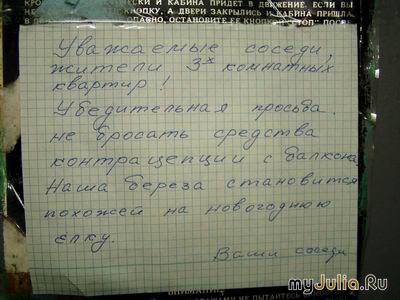 КРО КИ И КАБИНА ПРИДЕТ В ДВИЖЕНИЕ. ЕСЛИ ВЫ
НЕ КНОПКУ, А ДВЕРИ ЗАКРЫЛИСЬ И КАБИНА ПРИШЛА
В ОПАСНО, ОСТАНОВИТЕ ЕЕ КНОПКОЙ "СТОП".
Уважаемые соседи,
жители 3х комнатных
квартир!
Убедительная просьба,
не бросать средства
контрацепции с балкона.
Наша береза становится
похожей на новогоднюю
ёлку.
Ваши соседи
ВНИМАНИЕ
НЕ ПЫТАЙТЕСЬ
myJulia.Ru